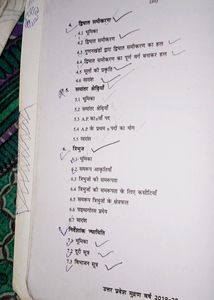 4. द्विघात समीकरण
4.1 भूमिका
4.2 द्विघात समीकरण
4.3 गुणनखंडों द्वारा द्विघात समीकरण का हल
4.4 द्विघात समीकरण का पूर्ण वर्ग बनाकर हल
4.5 मूलों की प्रकृति
4.6 सारांश
5. समांतर श्रेढ़ियाँ
5.1 भूमिका
5.2 समांतर श्रेढ़ियाँ
5.3 A.P. का nवाँ पद
5.4 A.P. के प्रथम n पदों का योग
5.5 सारांश
6. त्रिभुज
6.1 भूमिका
6.2 समरूप आकृतियाँ
6.3 त्रिभुजों की समरूपता
6.4 त्रिभुजों की समरूपता के लिए कसौटियाँ
6.5 समरूप त्रिभुजों के क्षेत्रफल
6.6 पाइथागोरस प्रमेय
6.7 सारांश
निर्देशांक ज्यामिति
7.1 भूमिका
7.2 दूरी सूत्र
7.3 विभाजन सूत्र
उत्तर प्रदेश मुद्रण वर्ष 2019-20